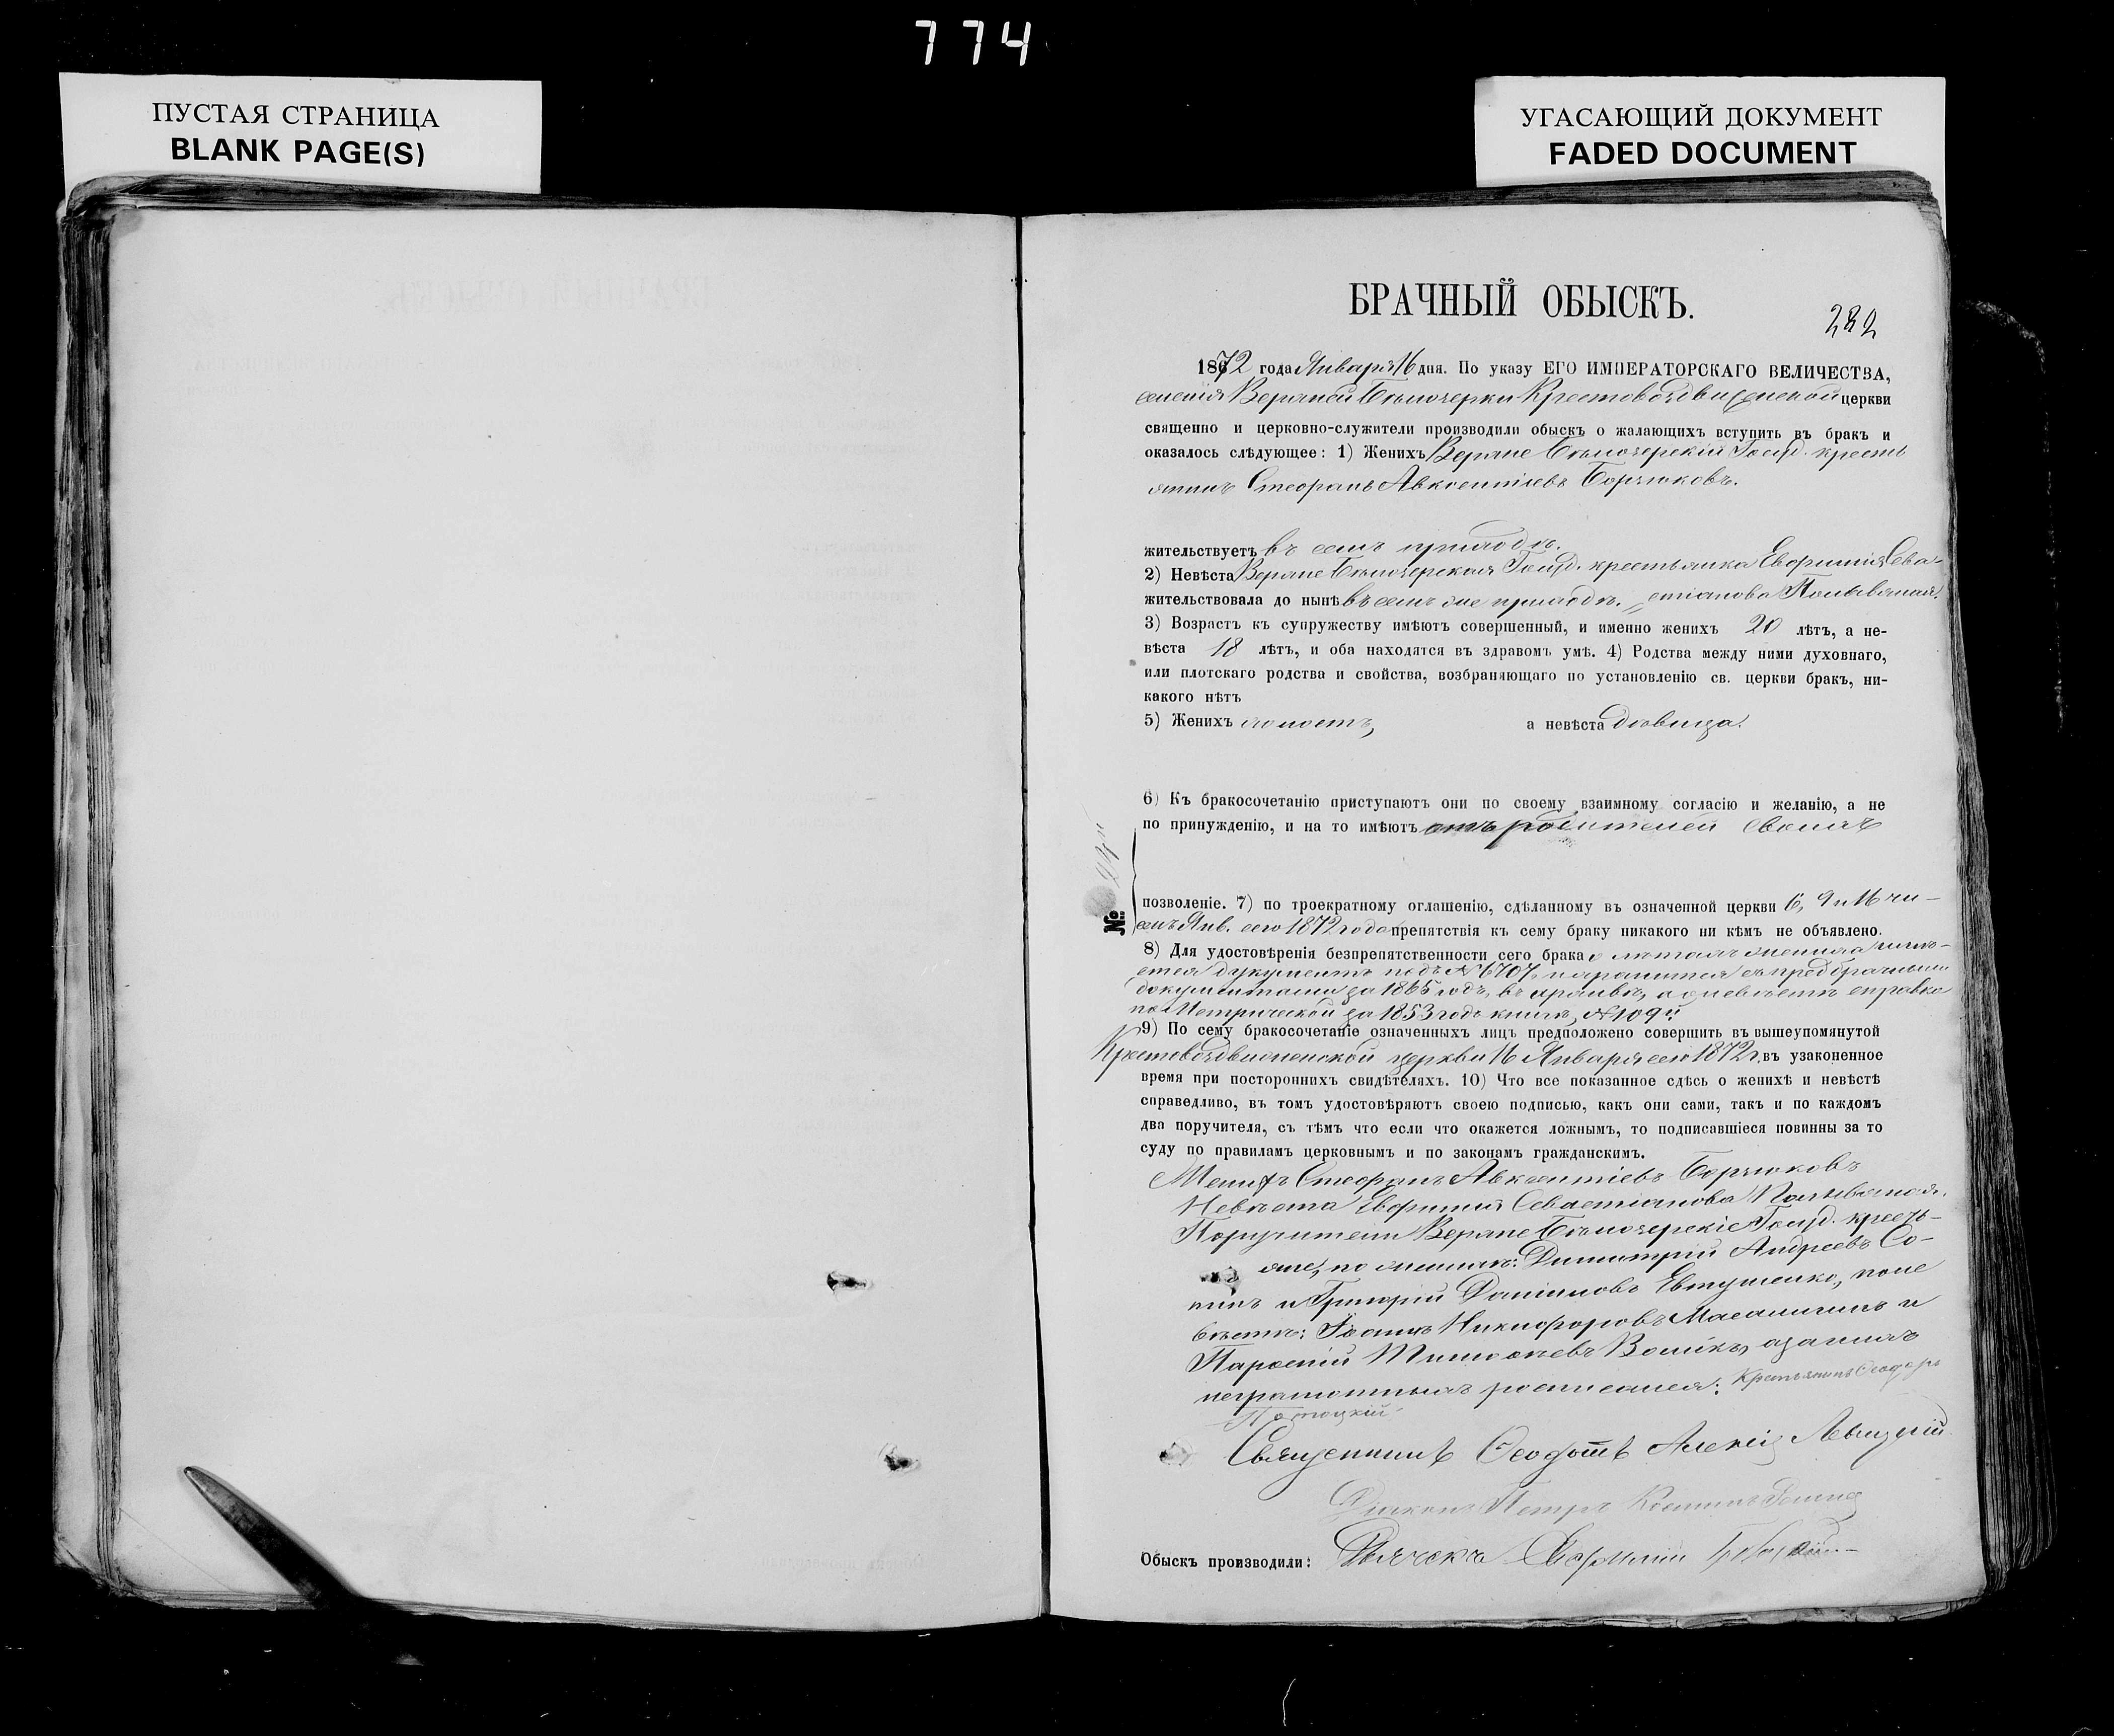 774
ПУСТАЯ СТРАНИЦА
BLANK PAGE(S)
УГАСАЮЩИЙ ДОКУМЕНТ
FADED DOCUMENT
БРАЧНЫЙ ОБЫСКЪ.
282
1872 года Января 16 дня. По указу ЕГО ИМПЕРАТОРСКАГО ВЕЛИЧЕСТВА,
Верхней Бѣлозерки Крестовоздвиженской церкви
священно и церковно-служители производили обыскъ о жалающихъ вступить въ бракъ и
оказалось слѣдующее: 1) Женихъ Верхне Бѣлозерскій Госуд. кресть
янинъ Стефанъ Авксентіевъ Борчюковъ.
жительствуетъ въ семъ приходѣ.
2) Невѣста Верхне Бѣлозерская Госуд. крестьянка Евфимія Сева-
жительствовала до нынѣ въ семъ же приходѣ. стіанова
3) Возрастъ къ супружеству имѣютъ совершенный, и именно женихъ 20 лѣтъ, а не-
вѣста 18 лѣтъ, и оба находятся въ здравомъ умѣ. 4) Родства между ними духовнаго,
или плотскаго родства и свойства, возбраняющаго по установленію св. церкви бракъ, ни-
какого нѣтъ
5) Женихъ холостъ, а невѣста дѣвица.
6) Къ бракосочетанію приступаютъ они по своему взаимному согласію и желанію, а не
по принужденію, и на то имѣютъ отъ родителей своихъ
№
позволеніе. 7) по троекратному оглашенію, сдѣланному въ означенной церкви 6, 9 и 16 чи-
селъ Янв. сего 1872 года препятствія къ сему браку никакого ни кѣмъ не объявлено.
8) Для удостовѣренія безпрепятственности сего брака о лѣтахъ жениха имѣ-
ется документъ подъ № 6707, и хранится съ предбрачными
документами за 1865 годъ, въ архивѣ, а о невѣстѣ справка
по Метрической за 1853 годъ книгѣ, № 109й
9) По сему бракосочетаніе означенныхъ лицъ предположено совершить въ вышеупомянутой
Крестовоздвиженской церкви 16 Января сего 1872 г. въ узаконенное
время при постороннихъ свидѣтеляхъ. 10) Что все показанное сдѣсь о женихѣ и невѣстѣ
справедливо, въ томъ удостовѣряютъ своею подписью, какъ они сами, такъ и по каждомъ
два поручителя, съ тѣмъ что если что окажется ложнымъ, то подписавшіеся повинны за то
суду по правиламъ церковнымъ и по законамъ гражданскимъ.
Женихъ Стефанъ Авксентіевъ Борчюковъ
Невѣста Евфимія Севастіанова
Поручители Верхне Бѣлозерскіе Госуд. кресть-
яне, по женихѣ: Димитрій Андреевъ Со-
и Григорій Даніиловъ Евтушенко, по не
вѣстѣ: Іоаннъ Никифоровъ и
Парѳеній Тимоѳеевъ Волікъ, а за нихъ
неграмотныхъ росписался: Крестьянинъ Ѳеодоръ
Потоцкій
Священникъ Ѳеодотъ Алексій Левицкій
Діаконъ Петръ
Обыскъ производили: Дьячекъ